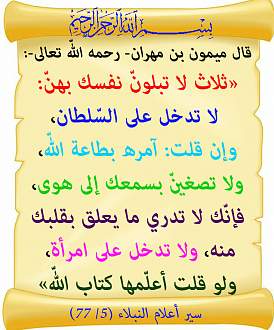 بسم الله الرحمن الرحيم
قال ميمون بن مهران- رحمه الله تعالى-:
«ثلاث لا تبلونّ نفسك بهنّ:
لا تدخل على السّلطان،
وإن قلت: آمره بطاعة الله،
ولا تصغينّ بسمعك إلى هوى،
فإنّك لا تدري ما يعلق بقلبك
منه، ولا تدخل على امرأة،
ولو قلت أعلّمها كتاب الله»
سير أعلام النبلاء (5/ 77)